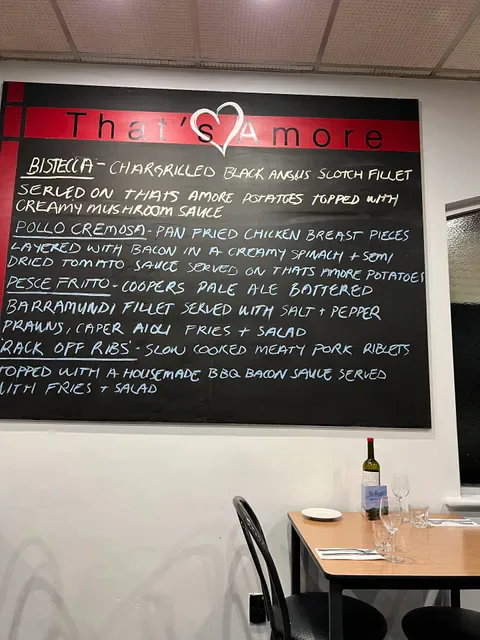 That's Amore
BISTECCA - CHARGRILLED BLACK ANGUS SCOTCH FILLET
SERVED ON THATS AMORE POTATOES TOPPED WITH
CREAMY MUSHROOM SAUCE
POLLO CREMOSA - PAN FRIED CHICKEN BREAST PIECES
LAYERED WITH BACON IN A CREAMY SPINACH + SEMI
DRIED TOMATO SAUCE SERVED ON THATS AMORE POTATOES
PESCE FRITTO - COOPERS PALE ALE BATTERED
BARRAMUNDI FILLET SERVED WITH SALT + PEPPER
PRAWNS, CAPER AIOLI FRIES + SALAD
'RACK OFF RIBS' - SLOW COOKED MEATY PORK RIBLETS
TOPPED WITH A HOUSEMADE BBQ BACON SAUCE SERVED
WITH FRIES + SALAD